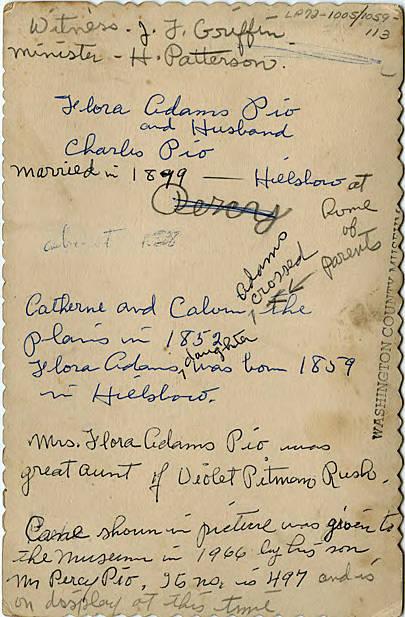 LA72-1005/1059-
113
Witness - J. F. Griffin
minister - H. Patterson.
Flora Adams Pio
and Husband
Charles Pio
married in 1899 — Hillsboro at
Home
of
parents
about
Adams
crossed
Catherne and Calvin the
plains in 1852
daughter
Flora Adams, was born 1859
in Hillsboro.
WASHINGTON COUNTY MUSEUM
Mrs. Flora Adams Pio was
great aunt of Violet Pitman Rush.
Cane shown in picture was given to
the museum in 1966 by his son
Mr Percy Pio, Its no. is 497 and is
on display at this time